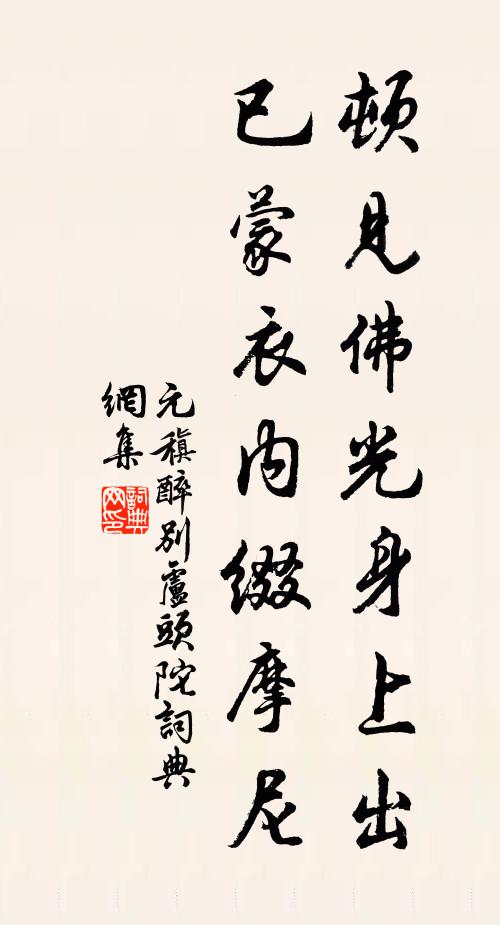 頓見佛光身上出
已蒙衣内綴摩尼
元稹醉別盧頭陀詞典
網集
詞典
网印